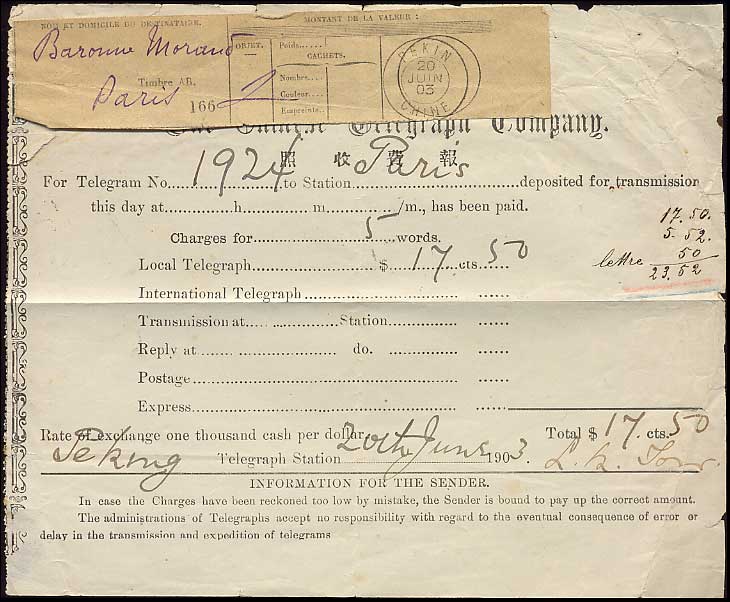 NOM ET DOMICILE DU DESTINATAIRE. MONTANT DE LA VALEUR :
Baronne Morand
Timbre AR.
Paris 166
OBJET.
Poids......
CACHETS.
Nombre....
Couleur....
Empreinte..
PEKIN
20
JUIN
03
CHINE
The Chinese Telegraph Company.
照 收 費 報
For Telegram No. 1924 to Station Paris deposited for transmission
this day at ............... h ............... m ............... /m., has been paid.
Charges for 5 words.
Local Telegraph $ 17 cts. 50
International Telegraph
Transmission at ............... Station
Reply at ............... do.
Postage
Express
17.50.
5.52.
lettre 50
23.52
Rate of exchange one thousand cash per dollar Total $ 17. cts. 50
Peking Telegraph Station 20th June 1903.
INFORMATION FOR THE SENDER.
In case the Charges have been reckoned too low by mistake, the Sender is bound to pay up the correct amount.
The administrations of Telegraphs accept no responsibility with regard to the eventual consequence of error or
delay in the transmission and expedition of telegrams